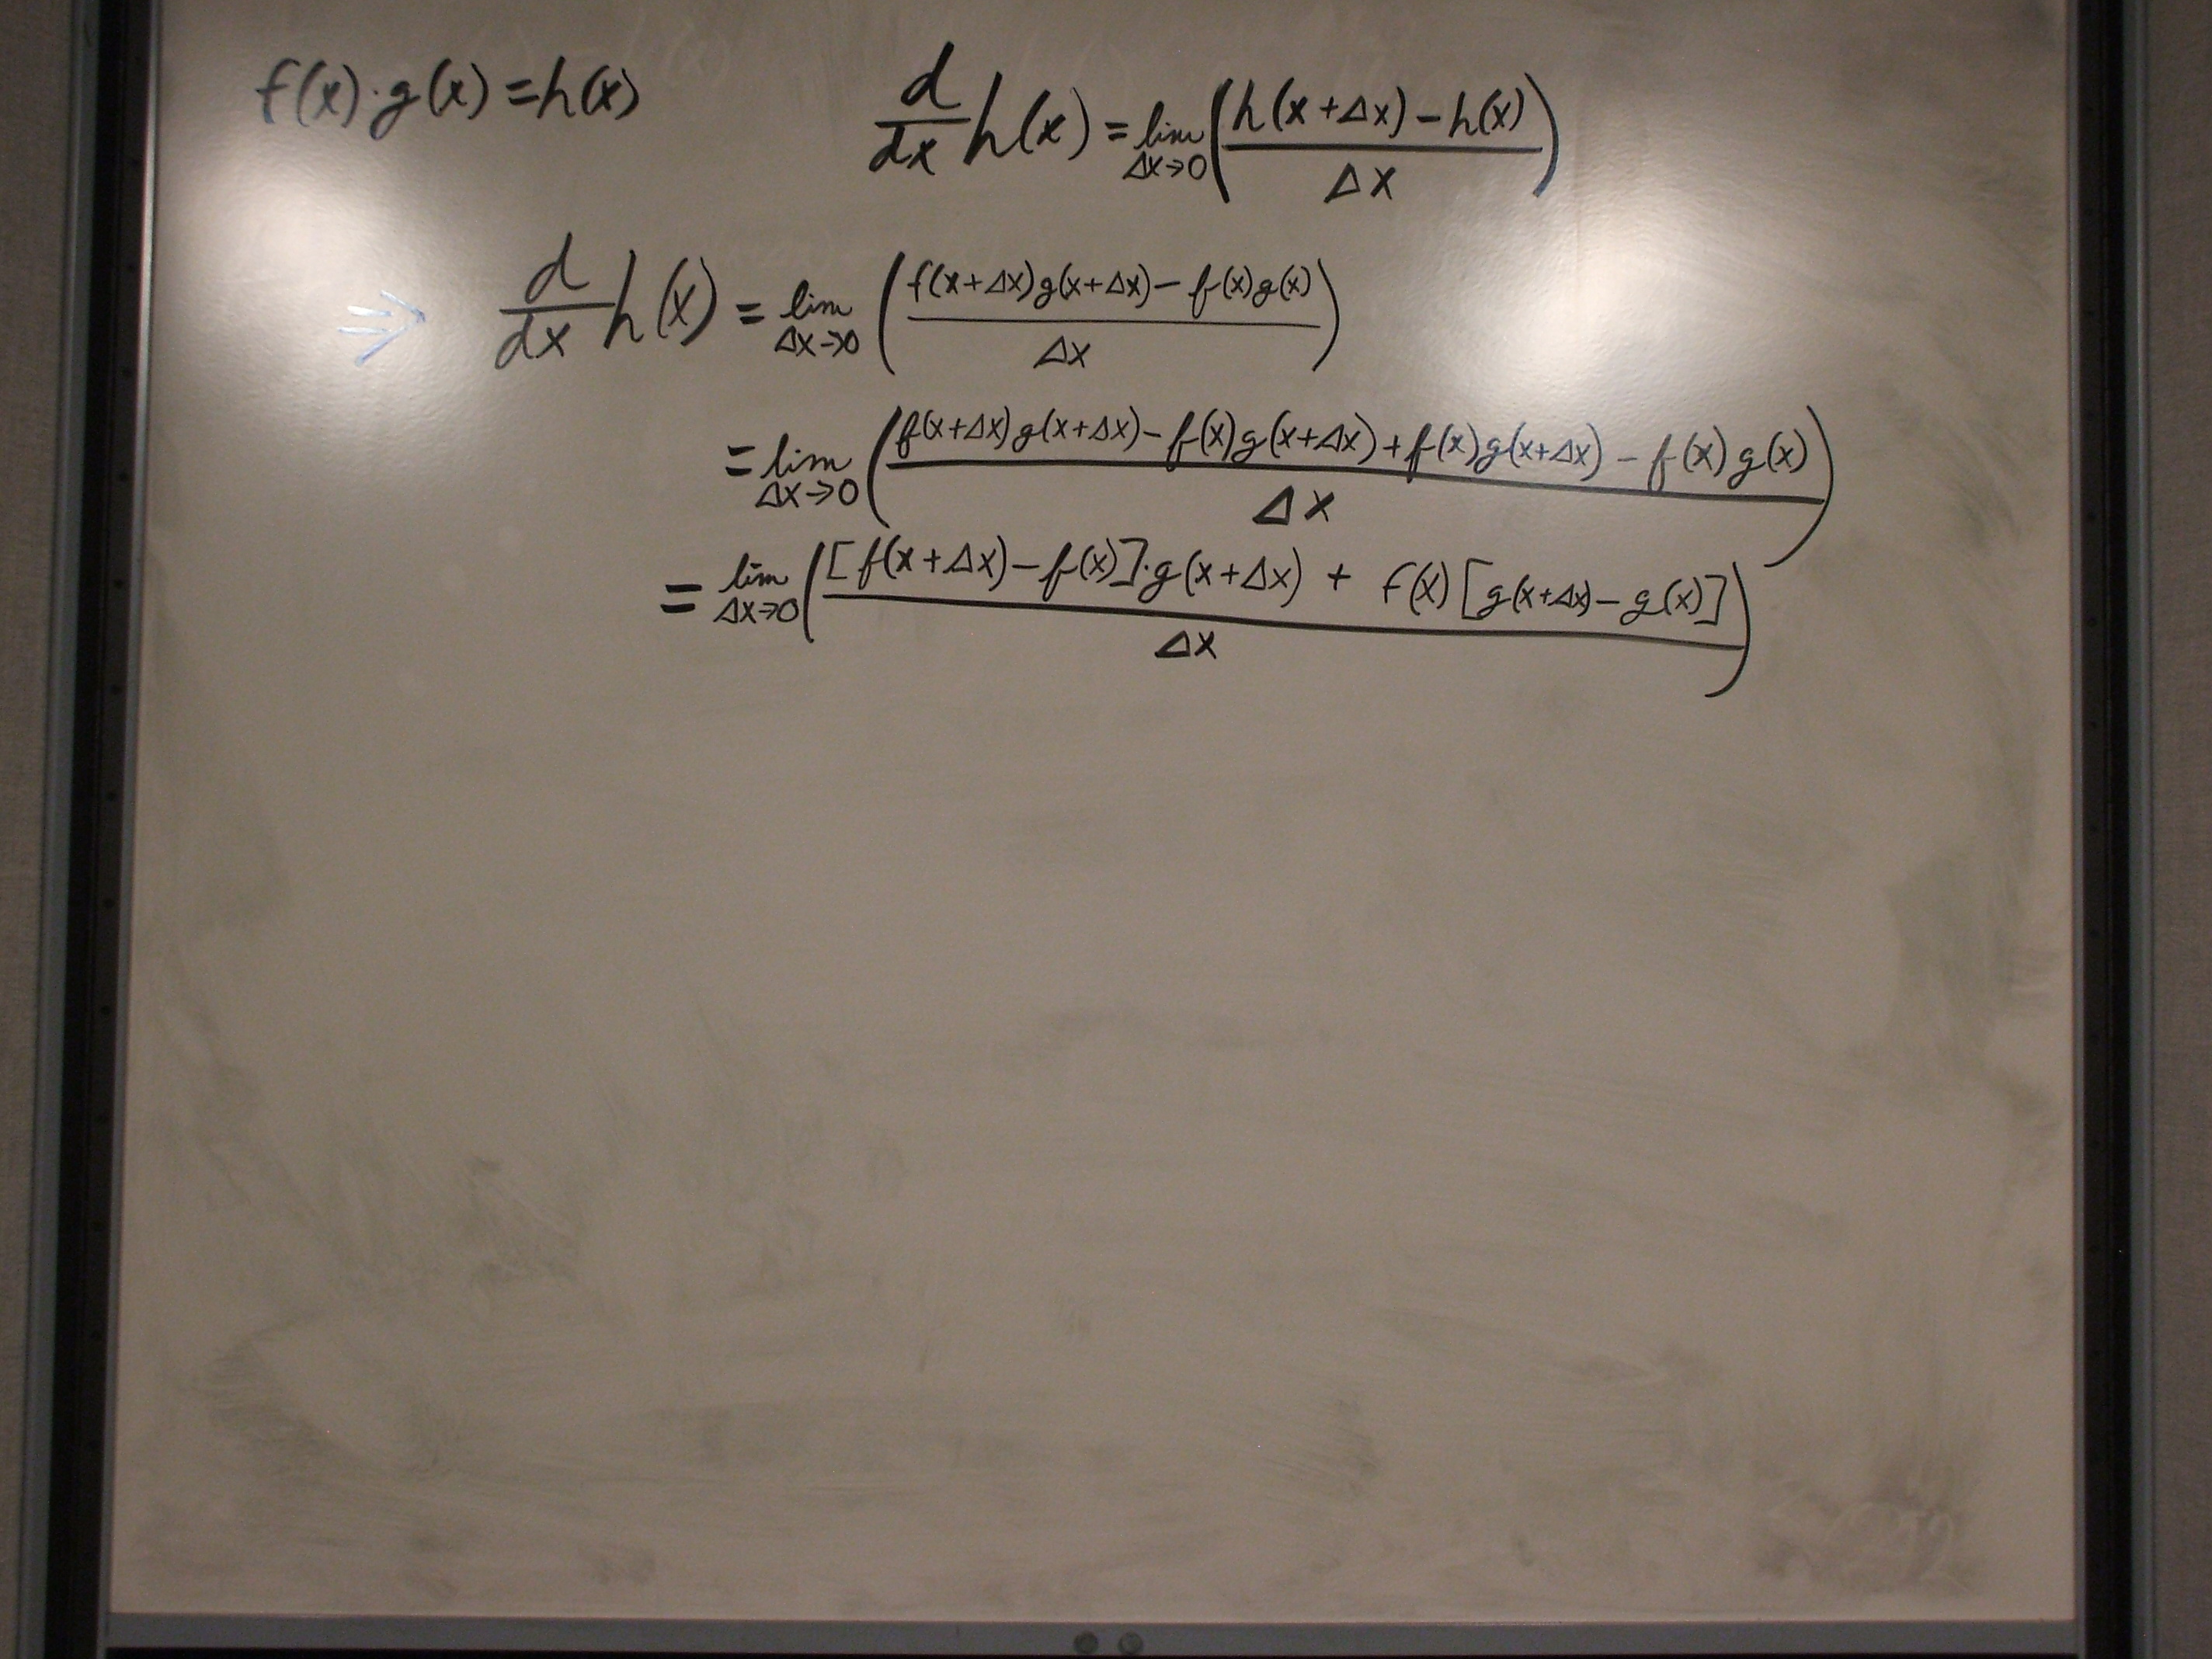 f(x)·g(x)=h(x)    d/dx h(x) = lim Δx→0 ( (h(x+Δx)-h(x)) / Δx )
⇒ d/dx h(x) = lim Δx→0 ( (f(x+Δx)g(x+Δx)-f(x)g(x)) / Δx )
= lim Δx→0 ( (f(x+Δx)g(x+Δx)-f(x)g(x+Δx)+f(x)g(x+Δx)-f(x)g(x)) / Δx )
= lim Δx→0 ( ([f(x+Δx)-f(x)]·g(x+Δx) + f(x)[g(x+Δx)-g(x)]) / Δx )